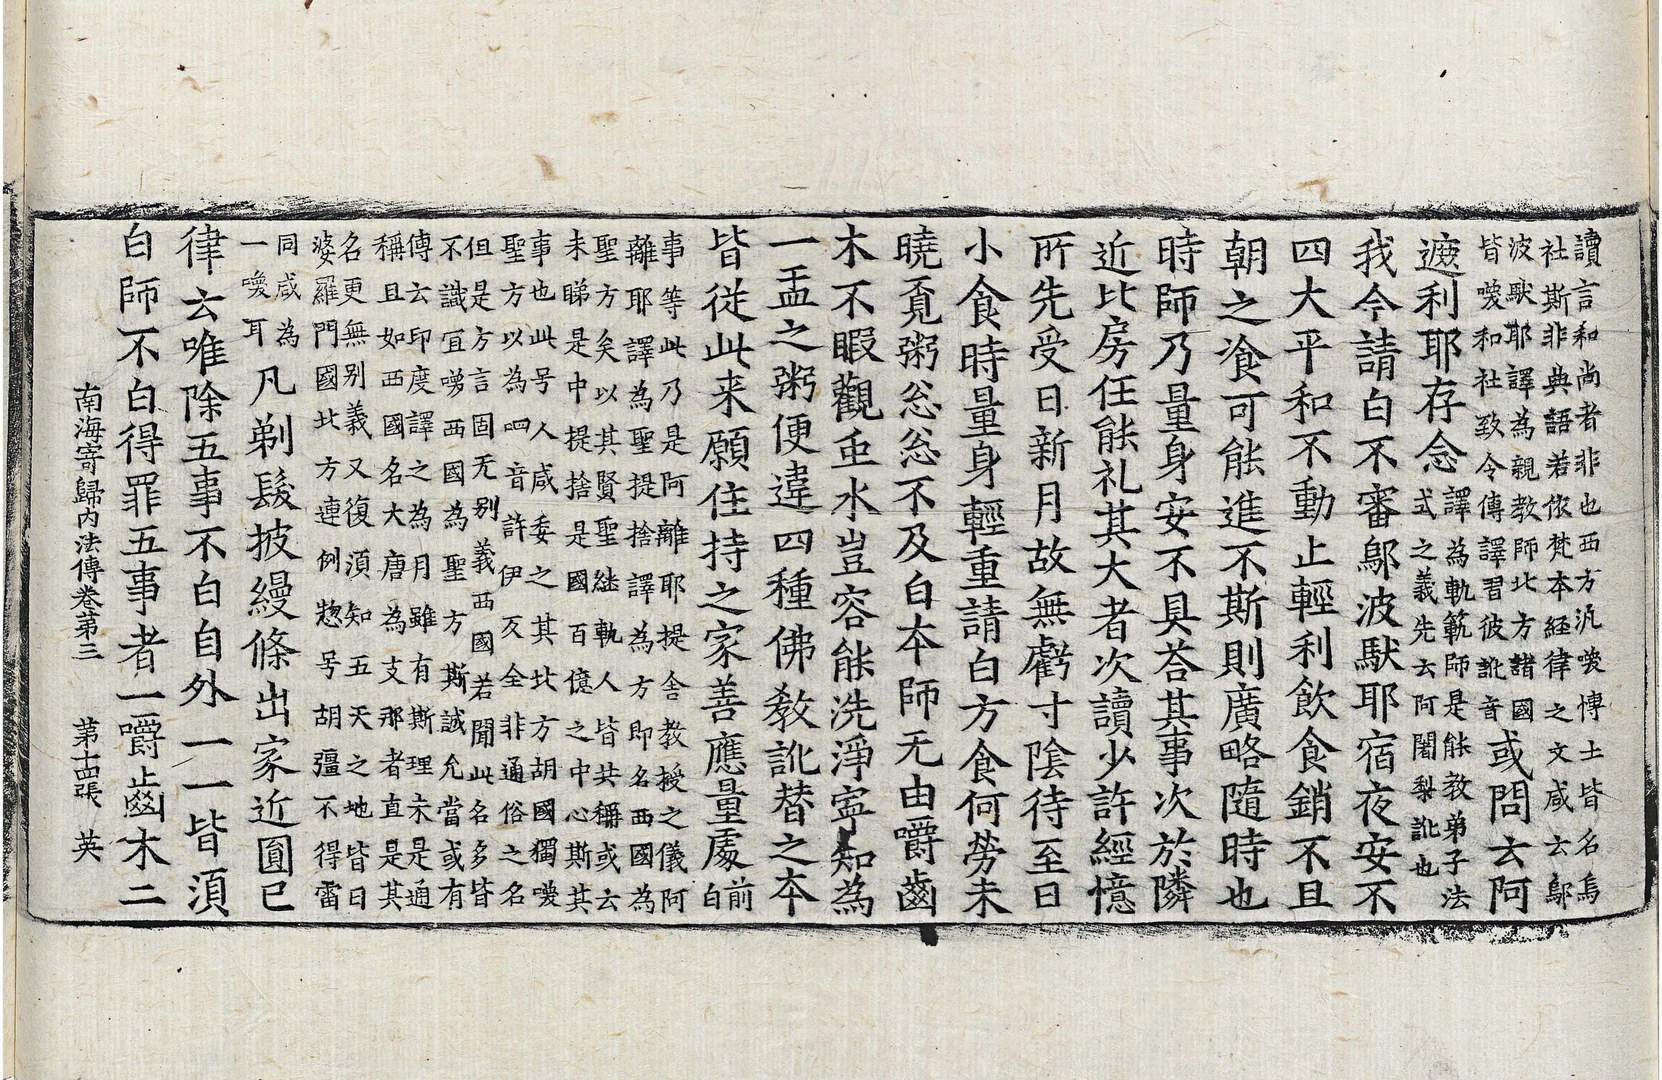 讀言和尚者非也西方汎喚博士皆名烏
社斯非典語若依梵本経律之文咸云鄔
波馱耶譯為親教師北方諸國
皆喚和社致令傳譯習彼訛音或問云阿
遮利耶存念譯為軌範師是能教弟子法
式之義先云阿闍梨訛也
我今請白不審鄔波馱耶宿夜安不
四大平和不動止輕利飲食銷不且
朝之飡可能進不斯則廣略隨時也
時師乃量身安不具荅其事次於隣
近比房任能礼其大者次讀少許經憶
所先受日新月故無虧寸陰待至日
小食時量身輕重請白方食何勞未
曉覓粥忩忩不及白本師无由嚼齒
木不暇觀䖝水豈容能洗淨寧知為
一盂之粥便違四種佛教訛替之本
皆從此来願住持之家善應量處前白
事等此乃是阿離耶提舍教授之儀阿
離耶譯為聖提捨譯為方即名西國為
聖方矣以其賢聖継軌人皆共稱或云
末睇是中提捨是國百億之中心斯其
事也此号人咸委之其北方胡國獨喚
聖方以為呬音許伊反全非通俗之名
但是方言固无别義西國若聞此名多皆
不識宜喚西國為聖方斯誠允當或有
傳云印度譯之為月雖有斯理未是通
稱且如西國名大唐為支那者直是其
名更無别義又復須知五天之地皆曰
婆羅門國北方速例惣号胡疆不得雷
同咸為
一喚耳凡剃髮披縵條出家近圎已
律云唯除五事不白自外一一皆須
白師不白得罪五事者一嚼齒木二
南海寄歸内法傳卷第三 第十四張 英